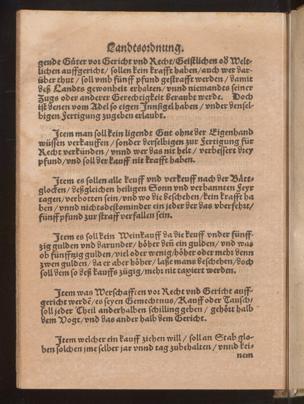 Landtsordnung.
gende Güter vor Gericht vnd Recht/Geistlichen oď Welt-
lichen auffgericht / sollen kein krafft haben/auch wer dar-
über thut / soll vmb fünff pfund gestrafft werden / damit
deß Landes gewonheit erhalten / vnnd niemandes seiner
Zugs oder anderer Gerechtigkeit beraubt werde. Doch
ist denen vom Adel so eigen Innsigel haben / vnder densel-
bigen Fertigung zugeben erlaubt.
Item man soll kein ligende Gut ohne der Eigenhand
wüssen verkauffen / sonder dieselbigen zur Fertigung für
Recht verkünden / vnnd wer das nit helt / verbessert diey
pfund/vnd soll der kauff nit krafft haben.
Item es sollen alle keuff vnd verkeuff nach der Bätt-
glocken/deßgleichen heiligen Sonn vnd verbannten Feyr
tagen/verbotten sein/vnd wo die beschehen/kein krafft ha
ben / vnnd nichtsdestominder ein jeder der das vberfehrt/
fünff pfund zur straff verfallen sein.
Item es soll kein Weinkauff da die keuff vnder fünff-
zig gulden vnd darunder / höher deñ ein gulden / vnd was
ob fünffzig gulden/viel oder wenig/höher oder mehr denn
zwen gulden / da er aber höher / laßt mans beschehen/doch
soll dem so deß kauffs zügig/mehr nit taxiert werden.
Item was Werschafften vor Recht vnd Gericht auff-
gericht werdẽ/ es seyen Gemechtnus/Kauff oder Tausch/
soll jeder Theil anderhalben schilling geben / gehört halb
dem Vogt/vnd das ander halb dem Gericht.
Item welcher ein kauff ziehen will / soll an Stab glo-
ben solchen jme selber zar vnnd tag zubehalten / vnnd kei-
nem